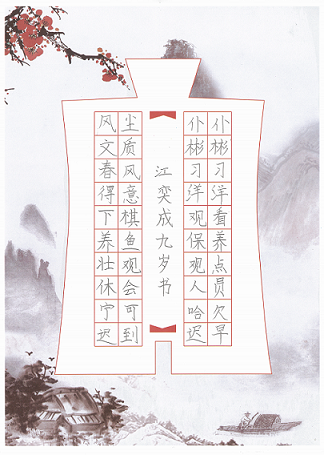 仆彬习洋看养点员欠早
仆彬习洋观保观人哈迟
江奕成九岁书
尘质风意棋鱼观会可到
风文春得下养壮休宁迟